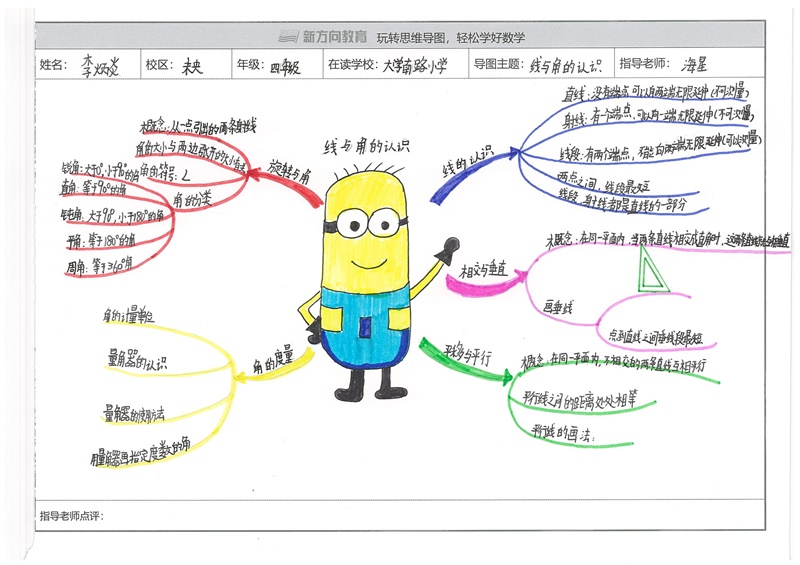 新方向教育 玩转思维导图，轻松学好数学
姓名：李炳炎 校区：未央 年级：四年级 在读学校：大学南路小学 导图主题：线与角的认识 指导老师：海星
线与角的认识
线的认识
直线：没有端点，可以向两端无限延伸（不可测量）
射线：有个端点，可以向一端无限延伸（不可测量）
线段：有两个端点，不能向两端无限延伸（可以测量）
两点之间，线段最短
线段、射线都是直线的一部分
相交与垂直
概念：在同一平面内，当两条直线相交成直角时，这两条直线互相垂直
画垂线
点到直线之间垂线段最短
平移与平行
概念：在同一平面内，不相交的两条直线互相平行
平行线之间的距离处处相等
平行线的画法：
旋转与角
概念：从一点引出的两条射线
角的大小与两边张开的大小有关
角的符号：∠
角的分类
锐角：大于0°，小于90°的角
直角：等于90°的角
钝角：大于90°，小于180°的角
平角：等于180°的角
周角：等于360°角
角的度量
角的计量单位
量角器的认识
量角器的使用方法
用量角器画指定度数的角
指导老师点评：